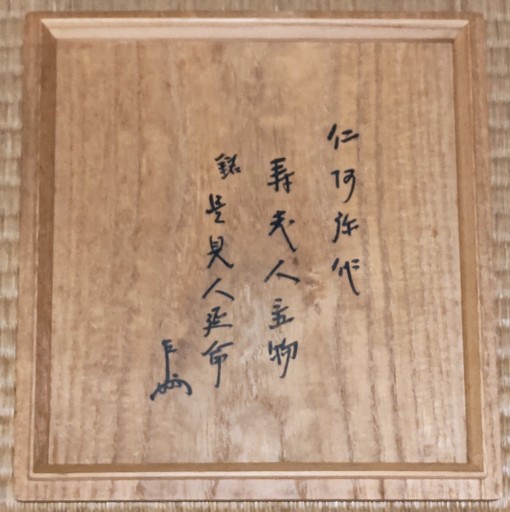 仁阿弥作
寿老人立物
銘 是見人延命